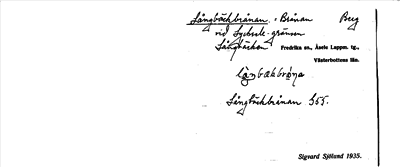 Långbäckbrånan. Brånan Berg
vid Lycksele-gränsen
Långbäcken Fredrika sn., Åsele Lappm. tg.,
Västerbottens län.
Långbäckbrånan 355.
Sigvard Sjölund 1935.